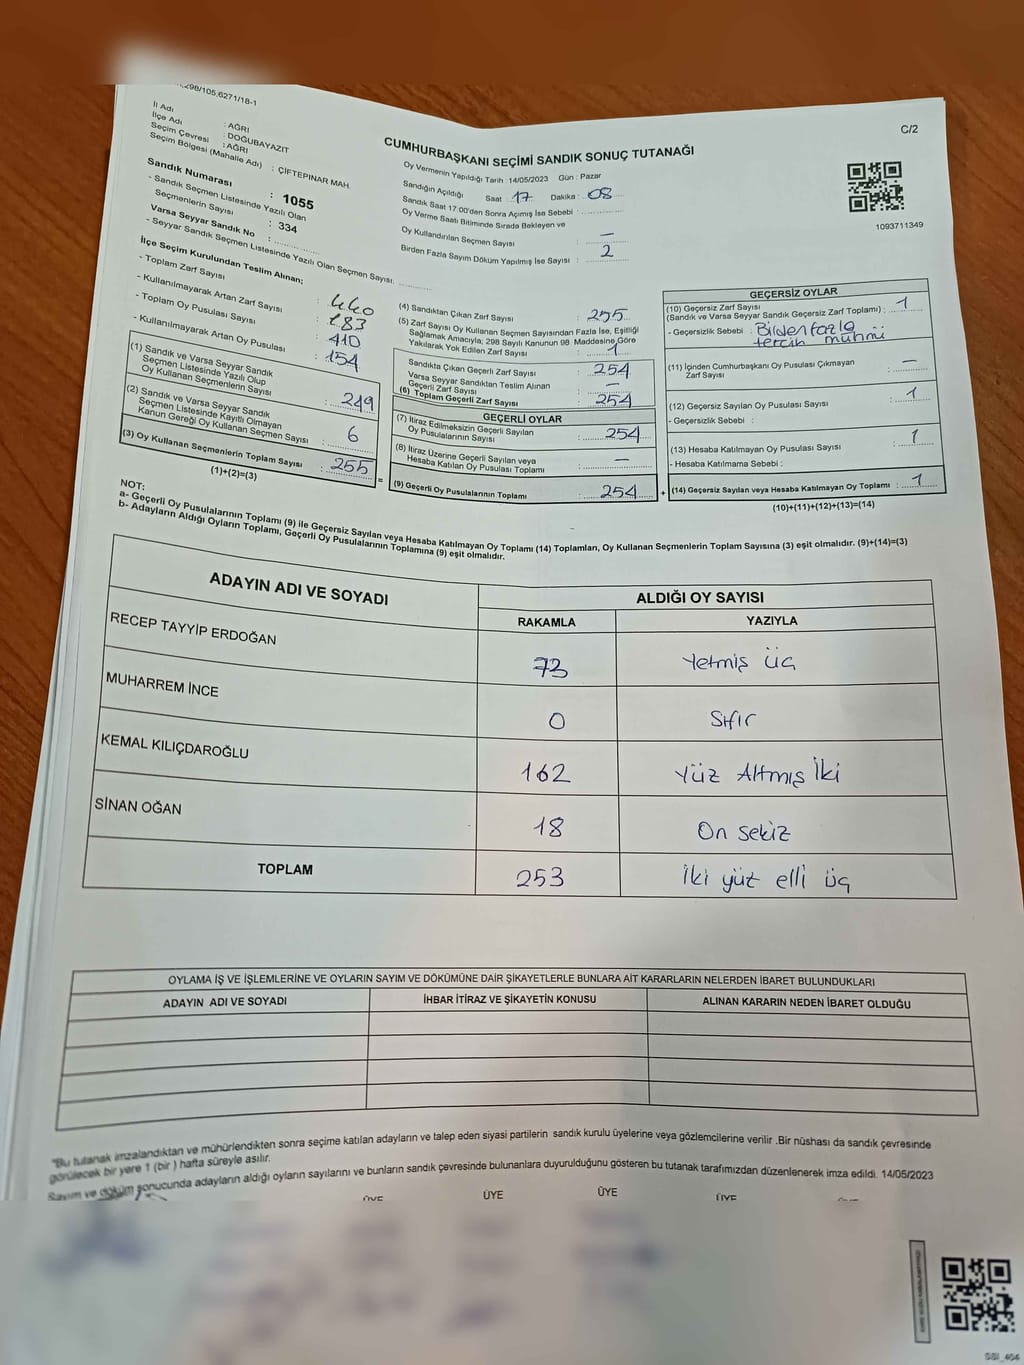 298/105,6271/18-1
C/2
İl Adı : AĞRI
İlçe Adı : DOĞUBAYAZIT
Seçim Çevresi : AĞRI
Seçim Bölgesi (Mahalle Adı) : ÇİFTEPINAR MAH.
Sandık Numarası : 1055
- Sandık Seçmen Listesinde Yazılı Olan
Seçmenlerin Sayısı : 334
Varsa Seyyar Sandık No :
- Seyyar Sandık Seçmen Listesinde Yazılı Olan Seçmen Sayısı:
CUMHURBAŞKANI SEÇİMİ SANDIK SONUÇ TUTANAĞI
Oy Vermenin Yapıldığı Tarih :14/05/2023 Gün : Pazar
Sandığın Açıldığı Saat : 17 Dakika : 08
Sandık Saat 17:00'den Sonra Açımış İse Sebebi :
Oy Verme Saati Bitiminde Sırada Bekleyen ve
Oy Kullandırılan Seçmen Sayısı : —
Birden Fazla Sayım Döküm Yapılmış İse Sayısı : 2
1093711349
İlçe Seçim Kurulundan Teslim Alınan;
- Toplam Zarf Sayısı : 440
- Kullanılmayarak Artan Zarf Sayısı : 183
- Toplam Oy Pusulası Sayısı : 410
- Kullanılmayarak Artan Oy Pusulası : 154
(1) Sandık ve Varsa Seyyar Sandık
Seçmen Listesinde Yazılı Olup
Oy Kullanan Seçmenlerin Sayısı : 249
(2) Sandık ve Varsa Seyyar Sandık
Seçmen Listesinde Kayıtlı Olmayan
Kanun Gereği Oy Kullanan Seçmen Sayısı : 6
(3) Oy Kullanan Seçmenlerin Toplam Sayısı : 255
(1)+(2)=(3)
=
(4) Sandıktan Çıkan Zarf Sayısı : 255
(5) Zarf Sayısı Oy Kullanan Seçmen Sayısından Fazla İse, Eşitliği
Sağlamak Amacıyla; 298 Sayılı Kanunun 98. Maddesine Göre
Yakılarak Yok Edilen Zarf Sayısı : 1
Sandıkta Çıkan Geçerli Zarf Sayısı : 254
Varsa Seyyar Sandıktan Teslim Alınan
Geçerli Zarf Sayısı : —
(6) Toplam Geçerli Zarf Sayısı : 254
GEÇERLİ OYLAR
(7) İtiraz Edilmeksizin Geçerli Sayılan
Oy Pusulalarının Sayısı : 254
(8) İtiraz Üzerine Geçerli Sayılan veya
Hesaba Katılan Oy Pusulası Toplamı : —
(9) Geçerli Oy Pusulalarının Toplamı : 254
+
GEÇERSİZ OYLAR
(10) Geçersiz Zarf Sayısı
(Sandık ve Varsa Seyyar Sandık Geçersiz Zarf Toplamı) : 1
- Geçersizlik Sebebi : Birden fazla
tercih mührü
(11) İçinden Cumhurbaşkanı Oy Pusulası Çıkmayan
Zarf Sayısı : —
(12) Geçersiz Sayılan Oy Pusulası Sayısı : 1
- Geçersizlik Sebebi :
(13) Hesaba Katılmayan Oy Pusulası Sayısı : 1
- Hesaba Katılmama Sebebi :
(14) Geçersiz Sayılan veya Hesaba Katılmayan Oy Toplamı : 1
(10)+(11)+(12)+(13)=(14)
NOT:
a- Geçerli Oy Pusulalarının Toplamı (9) ile Geçersiz Sayılan veya Hesaba Katılmayan Oy Toplamı (14) Toplamları, Oy Kullanan Seçmenlerin Toplam Sayısına (3) eşit olmalıdır. (9)+(14)=(3)
b- Adayların Aldığı Oyların Toplamı, Geçerli Oy Pusulalarının Toplamına (9) eşit olmalıdır.
ADAYIN ADI VE SOYADI
ALDIĞI OY SAYISI
RAKAMLA YAZIYLA
RECEP TAYYİP ERDOĞAN 73 Yetmiş üç
MUHARREM İNCE 0 Sıfır
KEMAL KILIÇDAROĞLU 162 Yüz Altmış İki
SİNAN OĞAN 18 On sekiz
TOPLAM 253 İki yüz elli üç
OYLAMA İŞ VE İŞLEMLERİNE VE OYLARIN SAYIM VE DÖKÜMÜNE DAİR ŞİKAYETLERLE BUNLARA AİT KARARLARIN NELERDEN İBARET BULUNDUKLARI
ADAYIN ADI VE SOYADI İHBAR İTİRAZ VE ŞİKAYETİN KONUSU ALINAN KARARIN NEDEN İBARET OLDUĞU
"Bu tutanak imzalandıktan ve mühürlendikten sonra seçime katılan adayların ve talep eden siyasi partilerin sandık kurulu üyelerine veya gözlemcilerine verilir .Bir nüshası da sandık çevresinde
görülecek bir yere 1 (bir ) hafta süreyle asılır.
Sayım ve döküm sonucunda adayların aldığı oyların sayılarını ve bunların sandık çevresinde bulunanlara duyurulduğunu gösteren bu tutanak tarafımızdan düzenlenerek imza edildi. 14/05/2023
ÜYE ÜYE ÜYE ÜYE